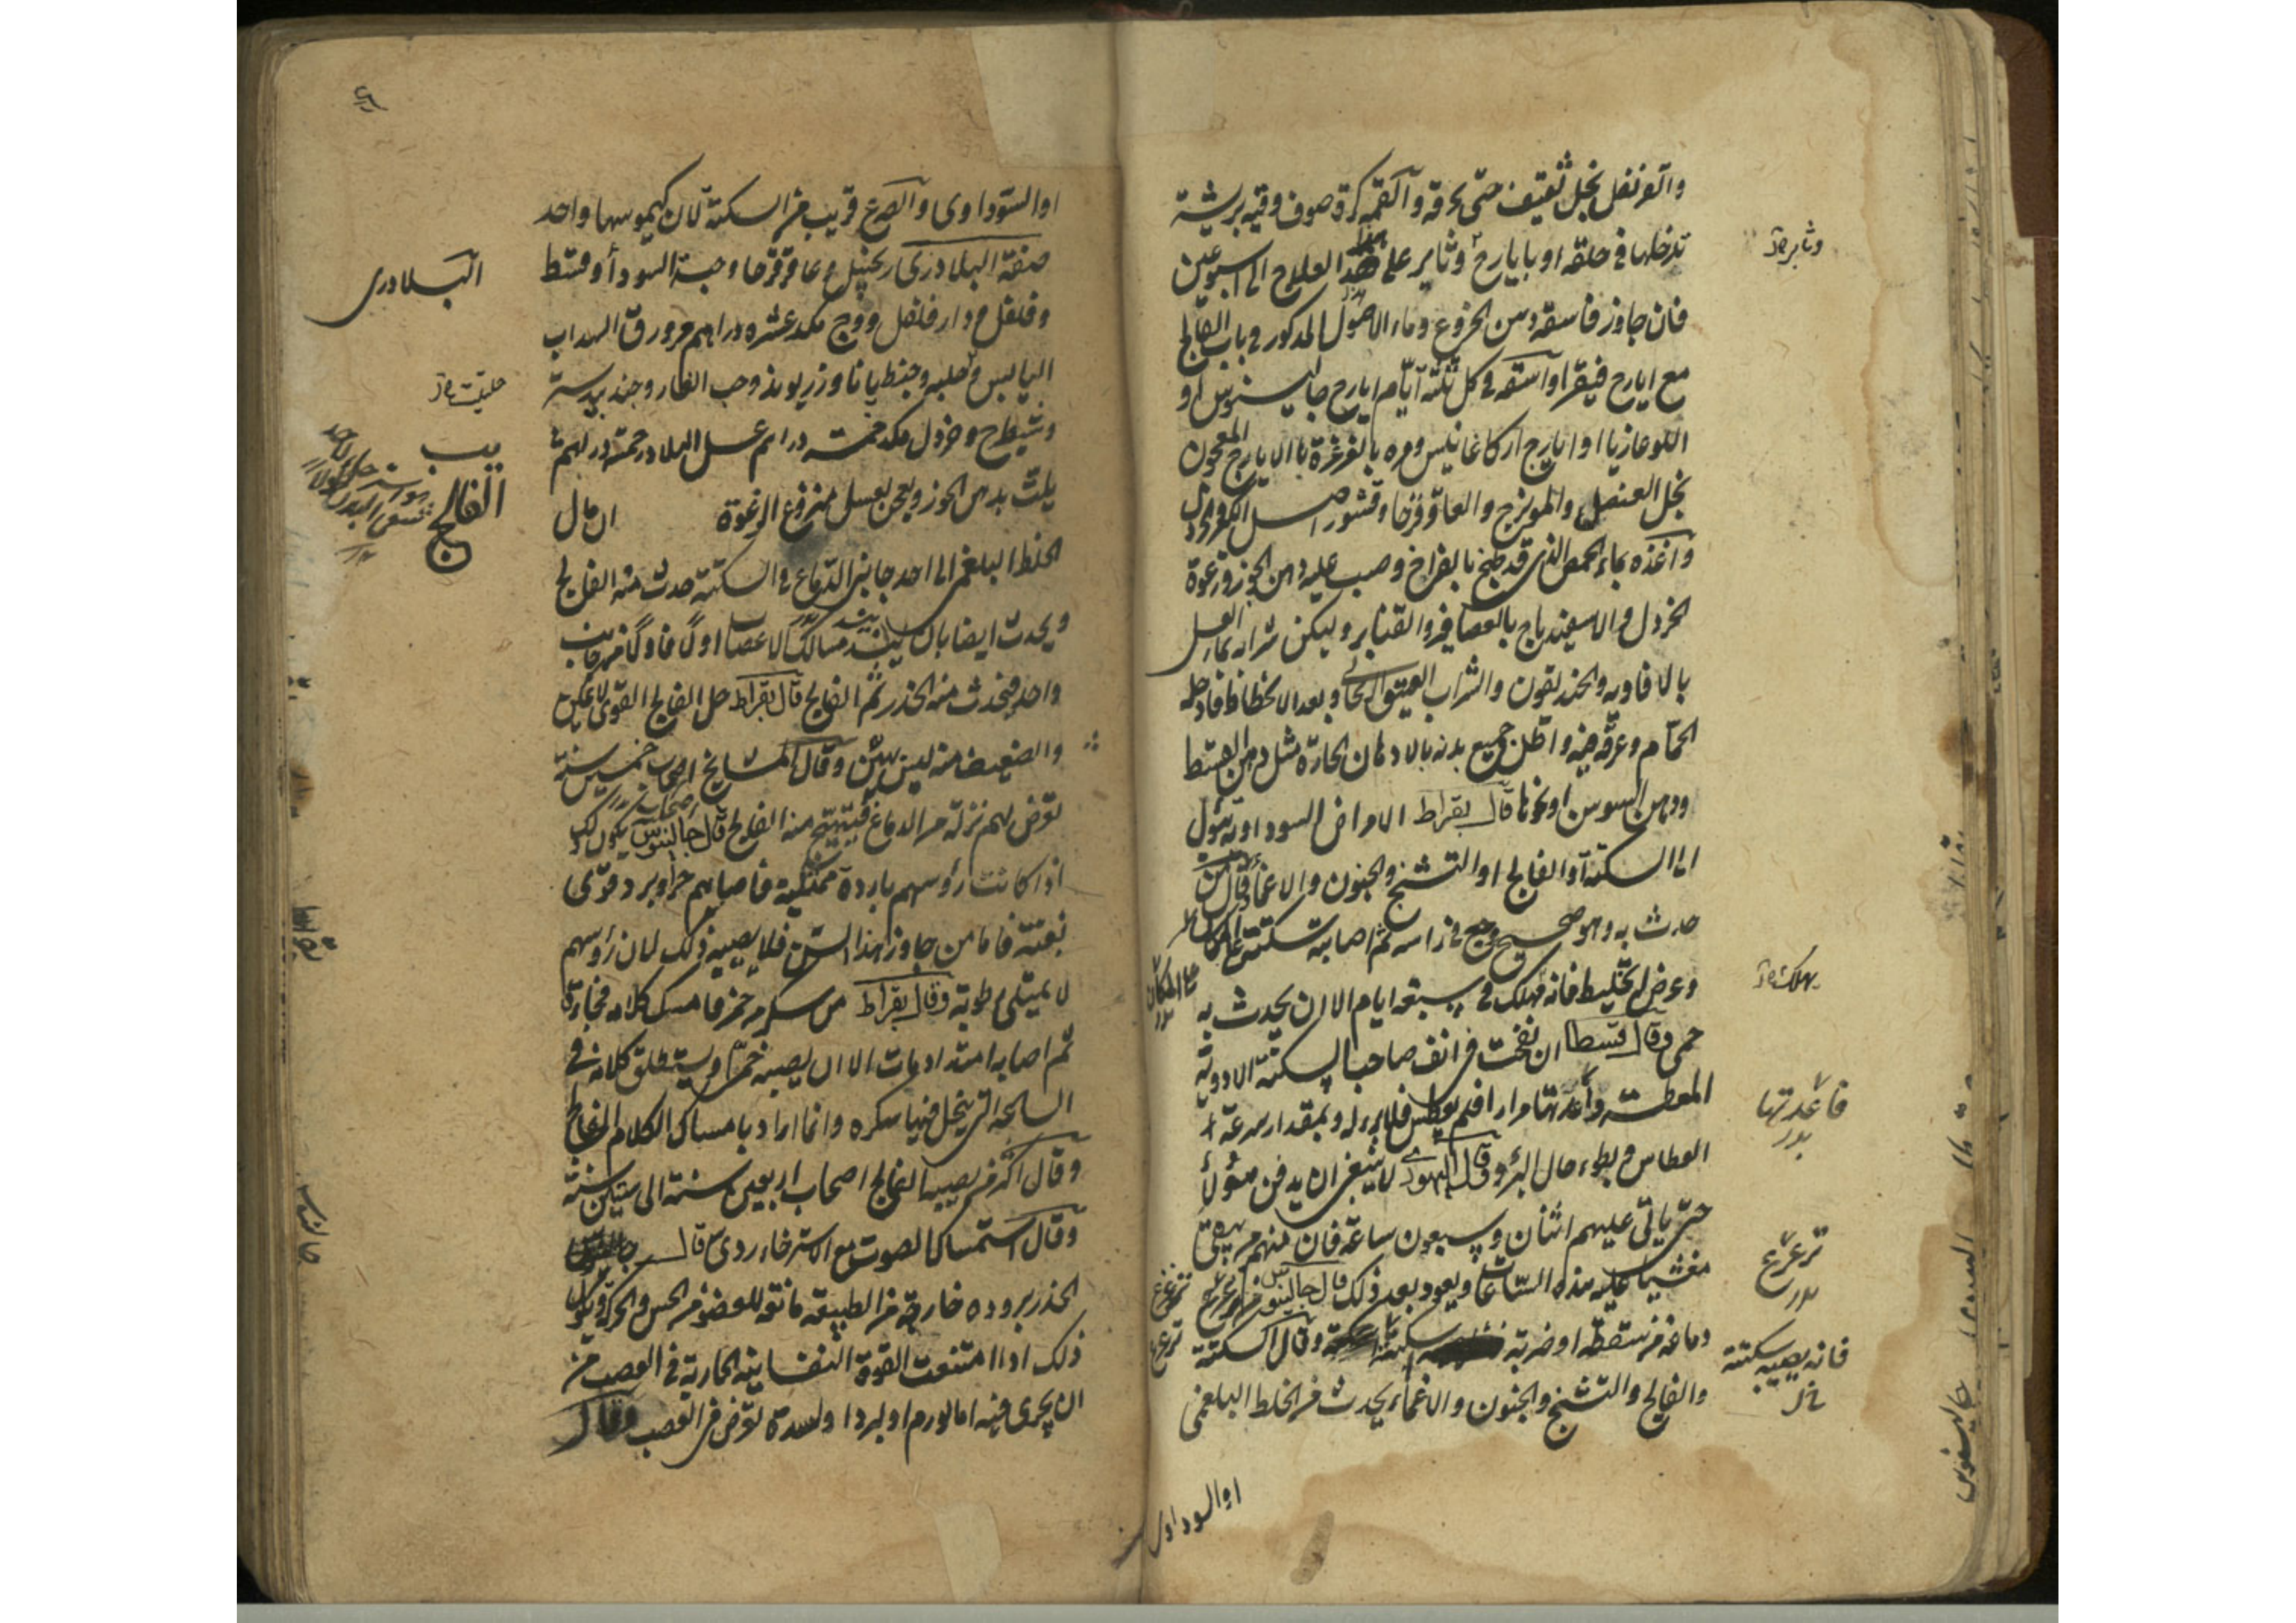 والقرنفل بخل ثقيف حتى يحرقه وآلقمه كرة صوف وقيه بريشة
تدخلها في حلقه او بايارج وثابر على هذا العلاج الى اسبوعين
وثابر
فان جاوز فاسقه دهن الخروع وماء الاصول المذكور في باب الفالج
مع ايارج فيقرا او آسقه في كل ثلثة آيام ايارج جالينوس او
اللوغاذيا او ايارج اركاغانيس ومره بالغرغرة بالايارج المعجون
بخل العنصل والمويزج والعاقرقرحا وقشور اصل الكبر والخردل
وآغذه بماء الحمص الذي قد طبخ بالفراخ وصب عليه دهن الجوز ورغوة
الخردل والاسفيدباج بالعصافير والقنابر وليكن شرابه ماء العسل
بالافاويه والخنديقون والشراب العتيق الريحاني وبعد الانحطاط فادخله
الحمّام وعرّقه فيه واطل جميع بدنه بالادهان الحارّة مثل دهن القسط
ودهن السوسن او نحوها قال بقراط الامراض السوداوية تئول
الى السكتة آو الفالج او التشنج والجنون والاغماء وقال من
حدث به وهو صحيح وجع في راسه ثم اصابته سكتة على المكان
وعرض له تخليط فانه يهلك في سبعة ايام الا ان يحدث به
يهلك
على المكان
حمى وقال قسطا ان نفخت في انف صاحب السكتة الادوية
المعطسة وأعدتها مرارا فلم يعطس فلا برء له وبمقدار سرعة
فاعدتها
العطاس وبطوء حال البرؤ وقال اليهودي لا ينبغي ان يدفن هؤلأ
حتى ياتى عليهم اثنان وسبعون ساعة فان منهم من يبقى
مغشيا عليه هذه السّاعات ويعود بعد ذلك قال جالينوس من تزعزع
تزعزع
دماغه من سقطة او ضربة سكتة وقال السكتة
فانه يصيبه سكتة
والفالج والتشنج والجنون والاغماء يحدث من الخلط البلغمي
او السوداوى
او السّوداوى وآلصرع قريب من السكتة لان كيموسهما واحد
صفة البلاذرى زنجبيل وعاقرقرحا وحبة السودأ وقسط
البلادرى
وفلفل ودارفلفل ووج مكد عشره دراهم ورق السداب
اليابس وحلبه وجنطيانا وزريوند وحب الغار وجندبيدستر
حلتيت
وشيطرج وخردل مكد خمسة دراهم عسل البلادر خمسة دراهم
يلت بدهن الجوز ويعجن بعسل منزوع الرغوة ان مال
يب
الفالج
الخلط البلغمى الى احد جانبى الدّماغ في السكتة حدث منه الفالج
ويحدث ايضا بان ينسد مسالك الاعصا اولًا فاولًا من جانب
واحد فيحدث منه الخدر ثم الفالج قال بقراط حل الفالج القوى لا يمكن
والضعيف منه ليس بهيّن وقال المشايخ اصحاب خمسين سنة
تعرض لهم نزلة من الدماغ فيتهيّج منه الفالج قال جالينوس يكون ذلك
اذا كانت رؤسهم باردة ممتلئة فاصابهم حر او برد قوّى
بغتة فاما من جاوز هذا السن فلا يصيبه ذلك لان رؤسهم
لا يمتلى رطوبة وقال بقراط من سكر من خمر فامسك كلامه فجاءة
ثم اصابه امتداد مات الا ان يصيبه حمّى او يستطلق كلامه في
الساعة التى ينحل فيها سكره وانما اراد بامساك الكلام الفالج
وقال اكثر من يصيبه الفالج اصحاب اربعين سنة الى ستين سنة
وقال آستمساك الصوت مع الاسترخاء ردى قال جالينوس
الخدر بروده خارجة من الطبيعة مانعة للعضو من الحس والحركة ويكون
ذلك اذا امتنعت القوة النفسانية الجارية في العصب من
ان يجرى فيه اما لورم او لبرد او لسدة تعرض في العصب وقال